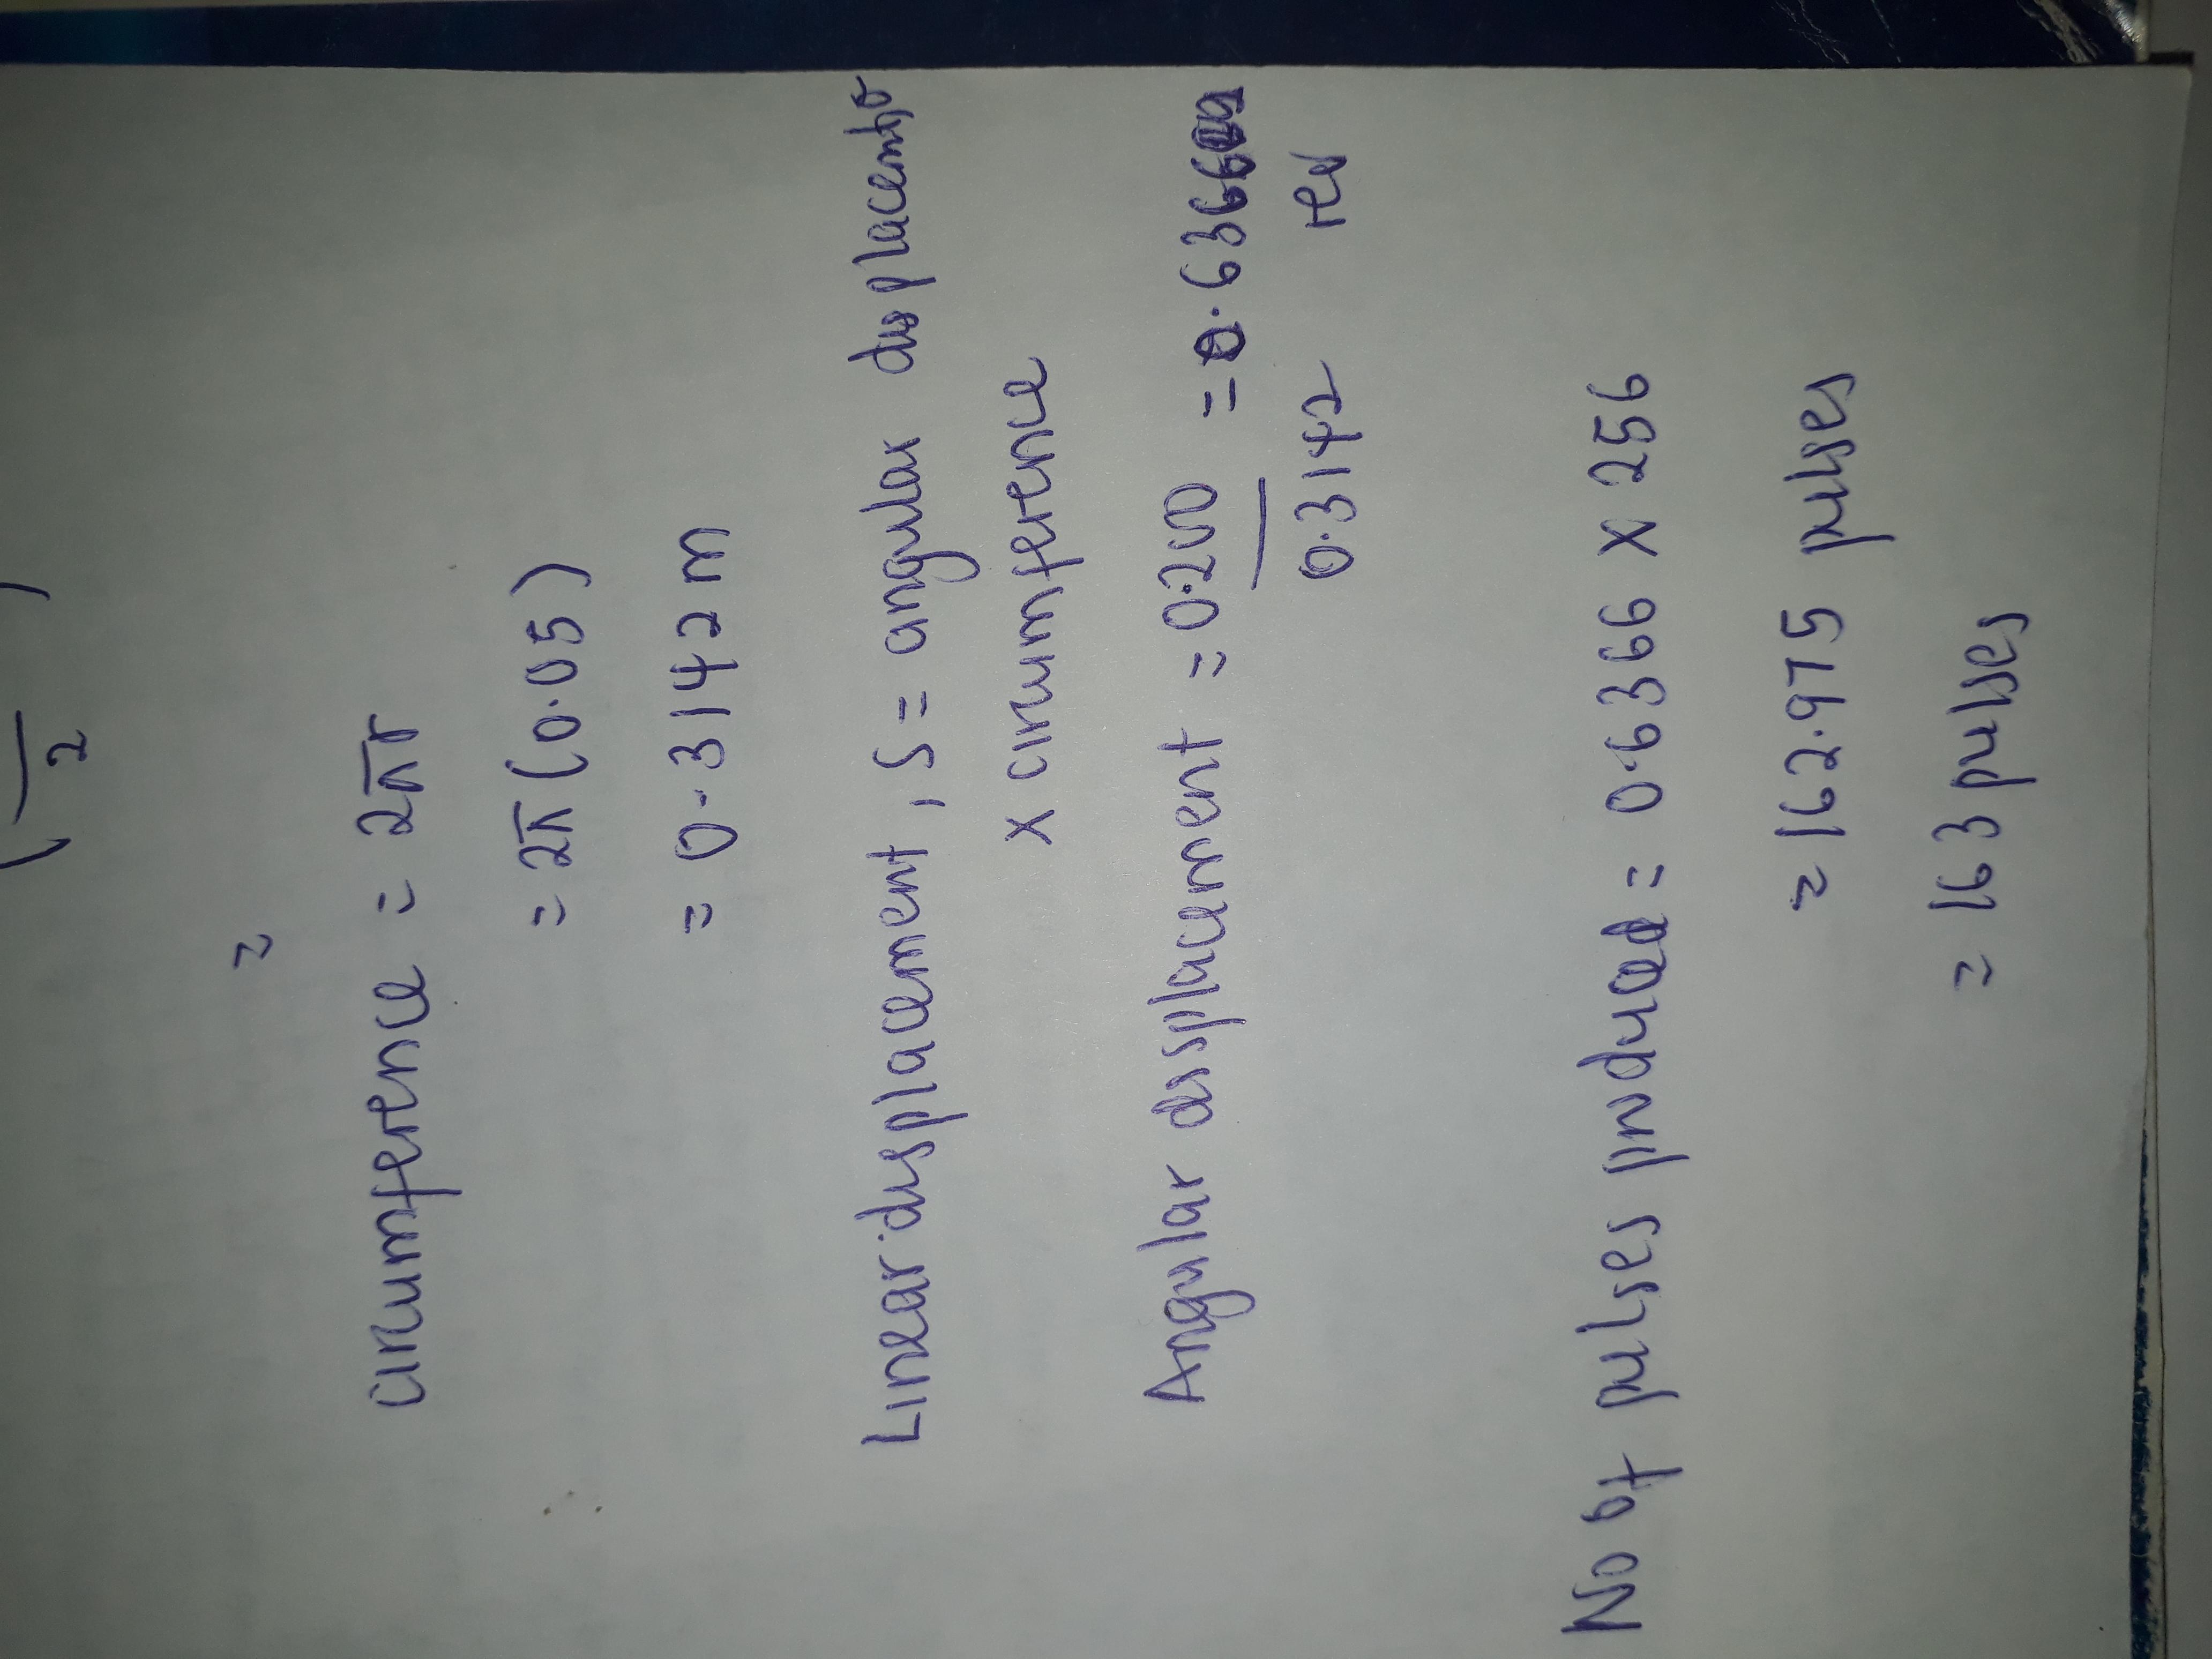 ( — )
2
=
circumference = 2πr
= 2π(0.05)
= 0.3142 m
Linear displacement, s = angular displacement
x circumference
Angular displacement = 0.200 = 0.6366
0.3142 rev
No of pulses produced = 0.6366 x 256
= 162.975 pulses
= 163 pulses